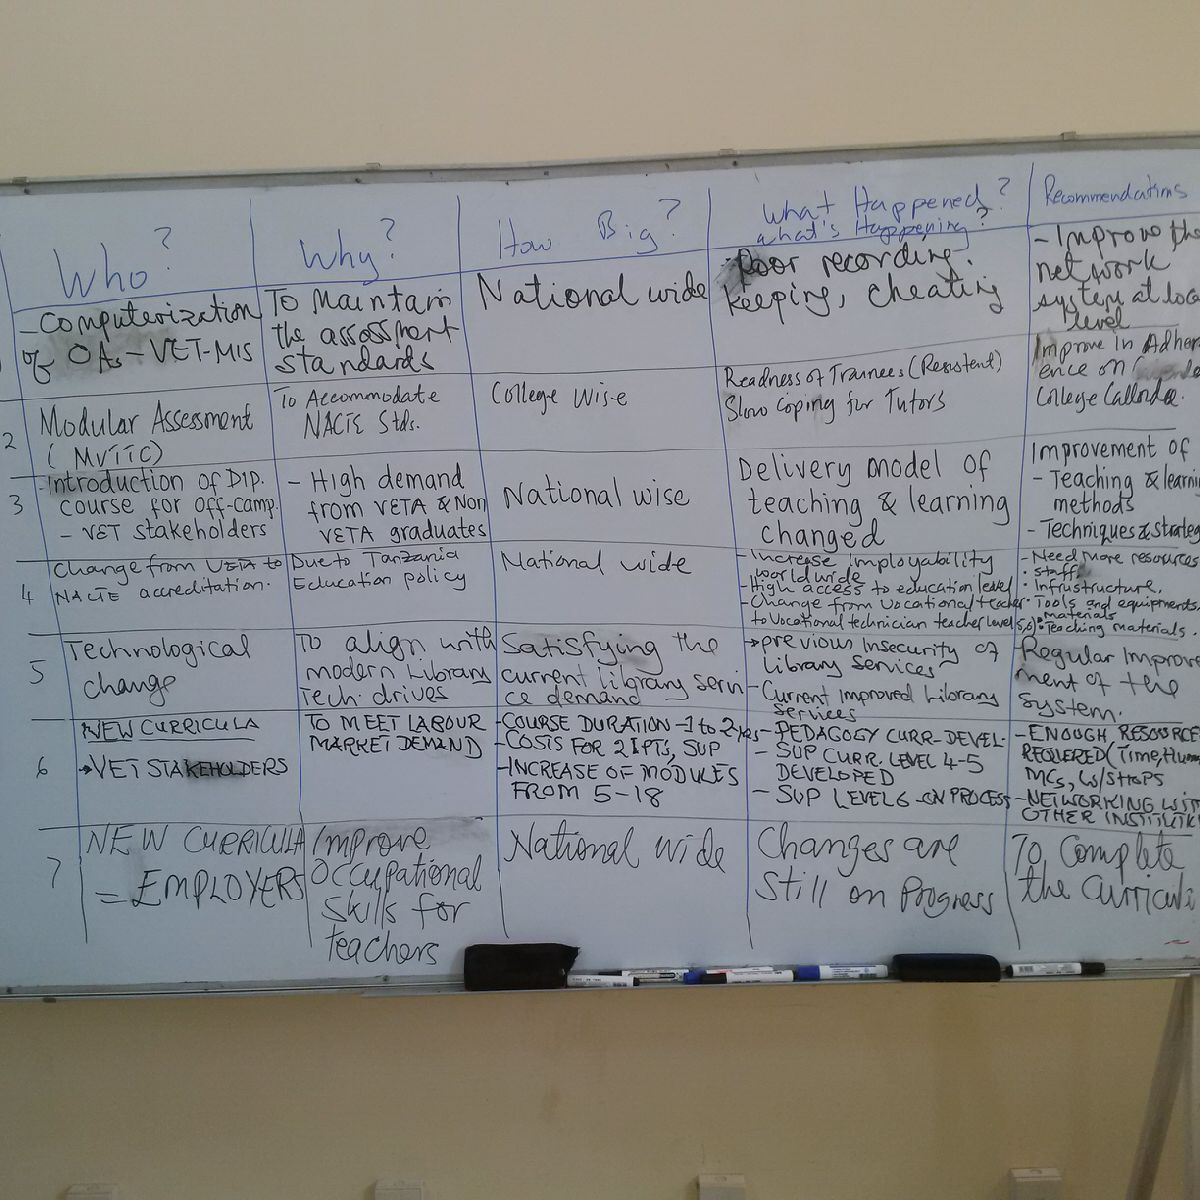 Who?
Why?
How Big?
What Happened?
what's Happening?
Recommendations
- Computerization
of OAs - VET-MIS
To Maintain
the assessment
standards
National wide
- Poor recording.
keeping, cheating
- Improve the
network
system at loc
level
2
Modular Assessment
(MVTTC)
To Accommodate
NACTE Stds.
College Wise
Readness of Trainees (Resistent)
Slow Coping for Tutors
Improve in Adher
ence on
College
3
- Introduction of DIP.
course for off-camp.
- VET stakeholders
- High demand
from VETA & Non
VETA graduates
National wise
Delivery model of
teaching & learning
changed
Improvement of
- Teaching & learni
methods
- Techniques & strateg
4
Change from VETA to
NACTE accreditation.
Due to Tanzania
Education policy
National wide
- Increase imployability
world wide
- High access to education level
- Change from Vocational teacher
to Vocational technician teacher level 5,6)
- Need More resources
• Staff
• Infrustructure.
• Tools and equipments
• materials
• Teaching materials.
5
Technological
change
To align with
modern Library
Tech. drives
Satisfying the
current library servi-
ce demand
→ previous Insecurity of
Library Services
- Current Improved Library
Services
- Regular Improve
ment of the
system.
6
NEW CURRICULA
→ VET STAKEHOLDERS
TO MEET LABOUR
MARKET DEMAND
- COURSE DURATION - 1 to 2 yrs
- COSTS FOR 2 IPTS, SUP
- INCREASE OF MODULES
FROM 5-18
- PEDAGOGY CURR-DEVEL-
- SUP CURR. LEVEL 4-5
DEVELOPED
- SUP LEVEL 6 - ON PROCESS
- ENOUGH RESOURCE
REQUERED (Time, Hum
MCs, W/SHOPS
- NETWORKING WIT
OTHER INSTITUTI
7
NEW CURRICULA
= EMPLOYERS
Improve
Occupational
skills for
teachers
National wide
Changes are
still on Progress
To Complete
the curricul